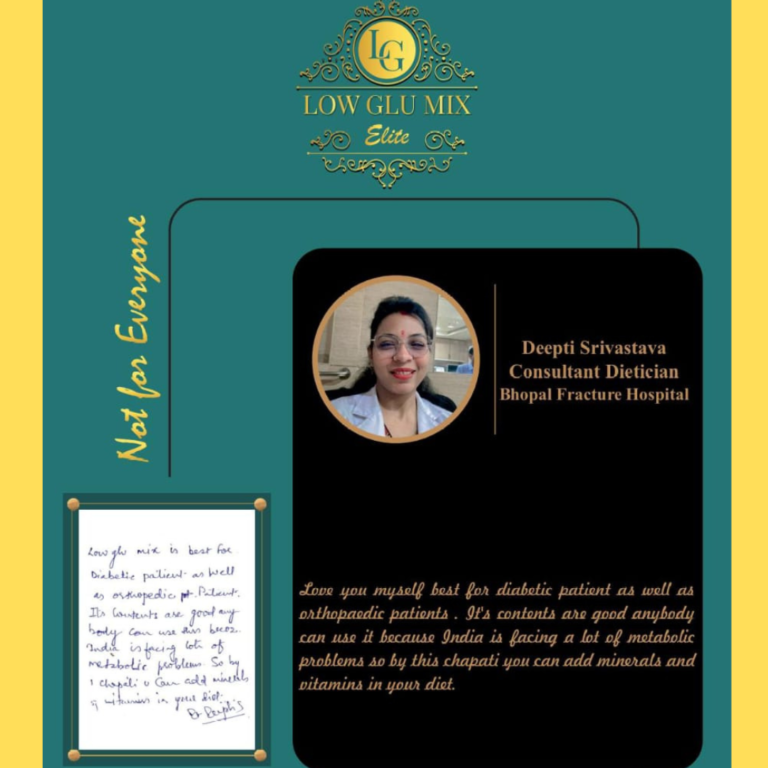 LG
LOW GLU MIX
Elite
Not for Everyone
Deepti Srivastava
Consultant Dietician
Bhopal Fracture Hospital
Low glu mix is best for
Diabetic patient as well
as orthopedic pt. Patient.
Its Contents are good any
body can use this becoz
India is facing lots of
metabolic problems. So by
1 chapati u Can add minerals
& vitamins in your diet.
Dr Deepti S
Love you myself best for diabetic patient as well as
orthopaedic patients . It's contents are good anybody
can use it because India is facing a lot of metabolic
problems so by this chapati you can add minerals and
vitamins in your diet.